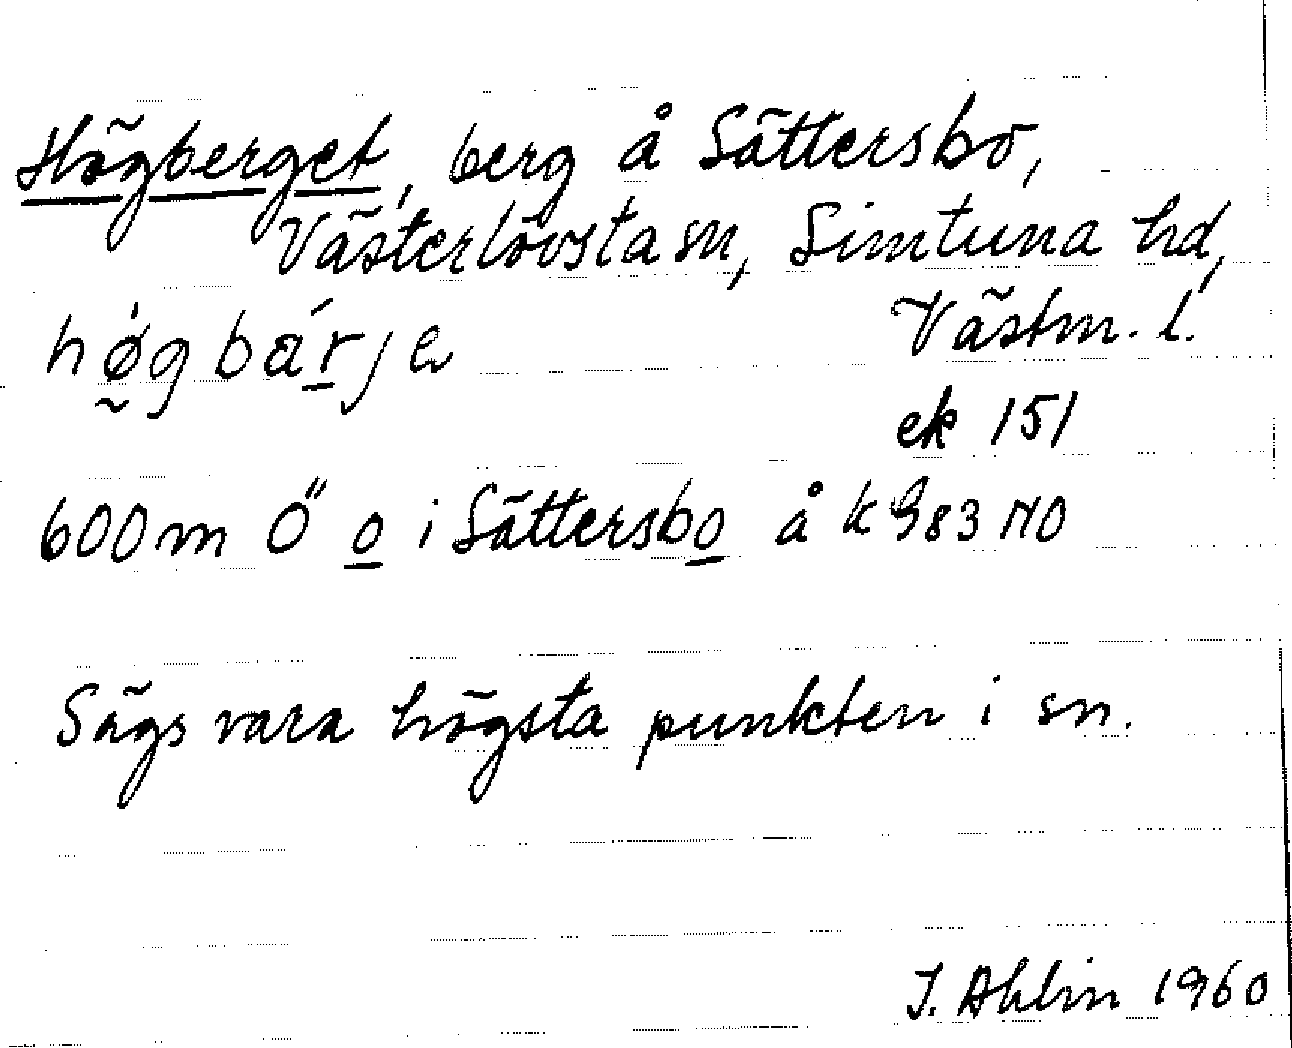 Högberget, berg å Sättersbo,
Västerlövsta sn, Simtuna hd,
høgbärje Västm. l.
ek 151
600 m Ö o i Sättersbo å k 983 NO
Sägs vara högsta punkten i sn.
I. Ahlin 1960